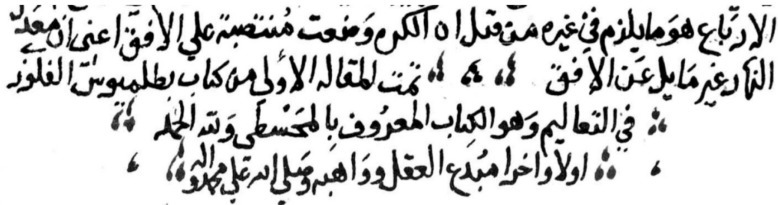 الارباع هو ما يلزم في غيره من قبل ان الكره وضعت منتصبة علي الافق اعني ان معدل
النهار غير مايل عن الافق تمت المقاله الاولي من كتاب بطلميوس القلوذي
في التعاليم وهو الكتاب المعروف بالمجسطي ولله الحمد
اولا واخرا مبدع العقل وواهبه وصلي الله علي محمد واله